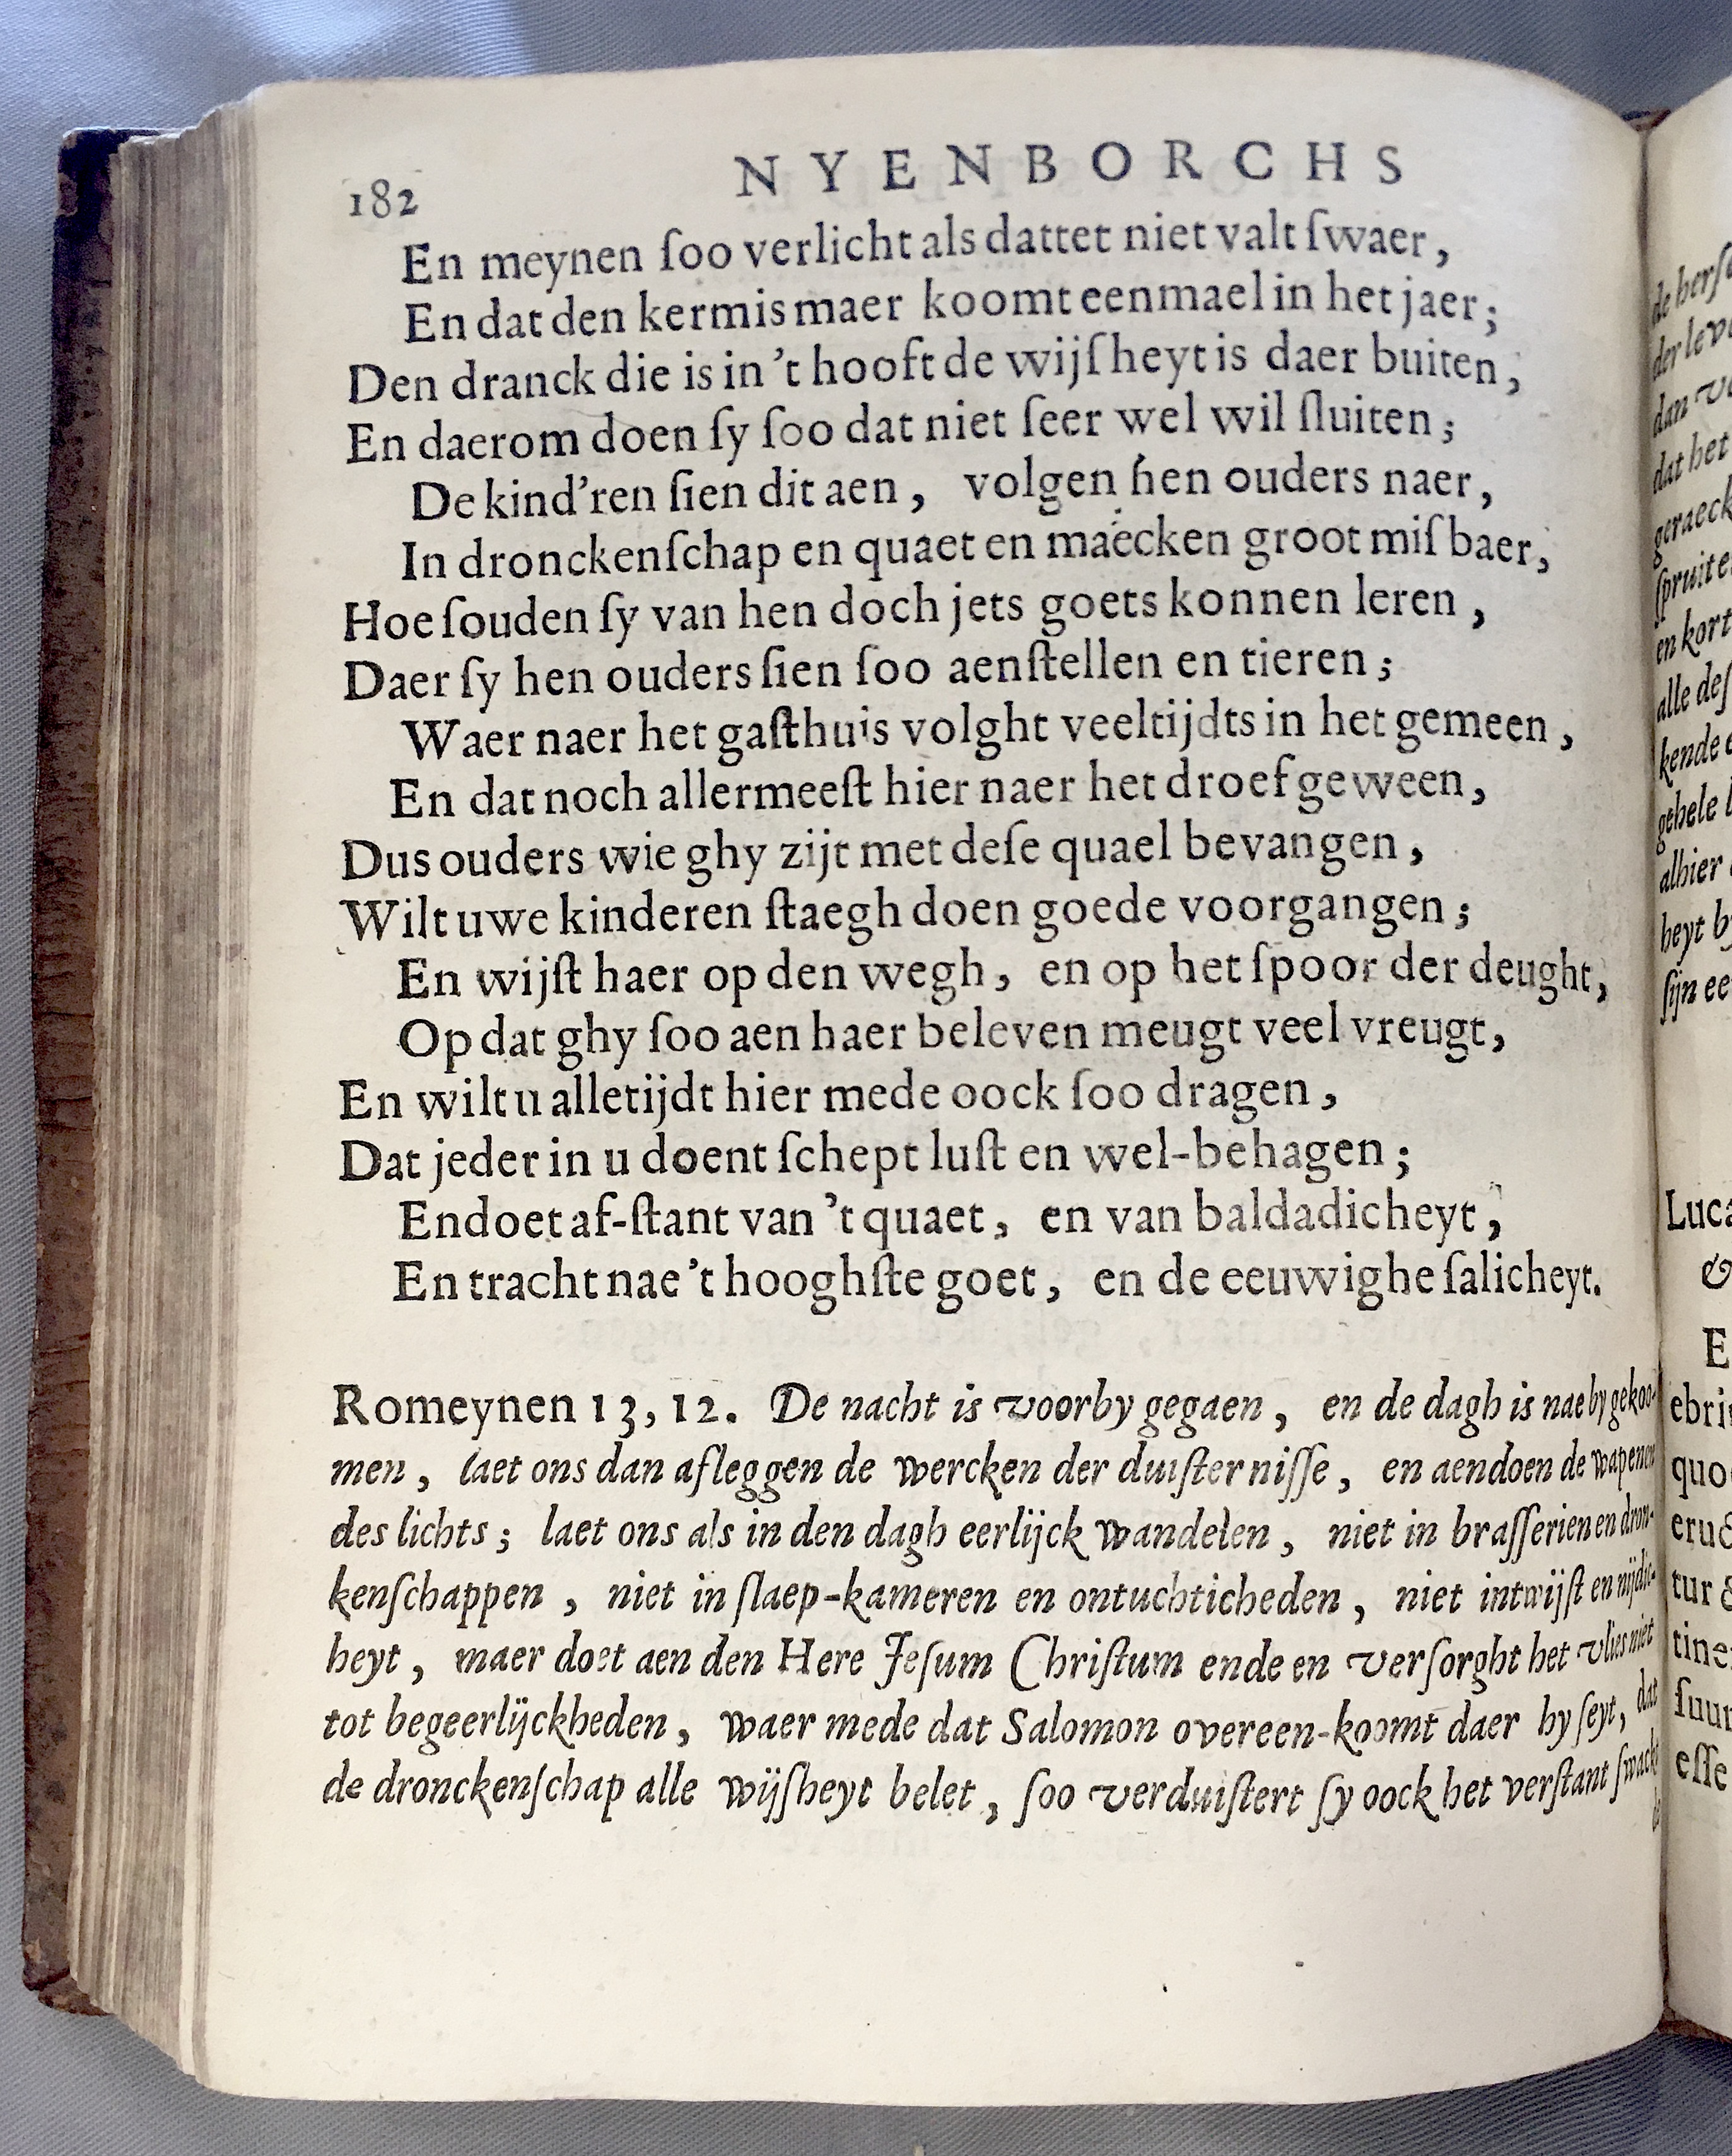 182 NYENBORCHS
En meynen ſoo verlicht als dattet niet valt ſwaer,
En dat den kermis maer koomt eenmael in het jaer;
Den dranck die is in 't hooft de wijſheyt is daer buiten,
En daerom doen ſy ſoo dat niet ſeer wel wil ſluiten;
De kind'ren ſien dit aen, volgen hen ouders naer,
In dronckenſchap en quaet en maecken groot miſbaer,
Hoe ſouden ſy van hen doch jets goets konnen leren,
Daer ſy hen ouders ſien ſoo aenſtellen en tieren;
Waer naer het gaſthuis volght veeltijdts in het gemeen,
En dat noch allermeeſt hier naer het droef geween,
Dus ouders wie ghy zijt met deſe quael bevangen,
Wilt uwe kinderen ſtaegh doen goede voorgangen;
En wijſt haer op den wegh, en op het ſpoor der deught,
Op dat ghy ſoo aen haer beleven meugt veel vreugt,
En wilt u alletijdt hier mede oock ſoo dragen,
Dat jeder in u doent ſchept luſt en wel-behagen;
En doet af-ſtant van 't quaet, en van baldadicheyt,
En tracht nae 't hooghſte goet, en de eeuwighe ſalicheyt.
Romeynen 13, 12. De nacht is voorby gegaen, en de dagh is nae by gekoo-
men, laet ons dan afleggen de wercken der duiſterniſſe, en aendoen de wapenen
des lichts; laet ons als in den dagh eerlijck wandelen, niet in braſſerien en dron-
kenſchappen, niet in ſlaep-kameren en ontuchticheden, niet in twijſt en nijdic-
heyt, maer doet aen den Here Jeſum Chriſtum ende en verſorght het vlies niet
tot begeerlijckheden, waer mede dat Salomon overeen-koomt daer hy ſeyt, dat
de dronckenſchap alle wijſheyt belet, ſoo verduiſtert ſy oock het verſtant ſwackt
de herſ
der lev
dan
dat het
geraeck
ſpruite
en kort
alle deſ
kende
gehele
alhier
heyt b
ſijn ee
Luca
&
E
ebri
quo
eru
tur
tine
ſuu
eſſe